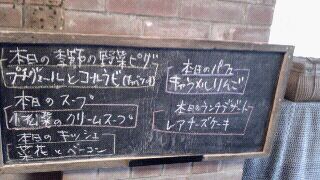 本日の季節の野菜ピザ
プチヴェールとコールラビ
本日のスープ
小松菜のクリームスープ
本日のキッシュ
菜花とベーコン
本日のパフェ
キャラメルりんご
本日のランチデザート
レアチーズケーキ